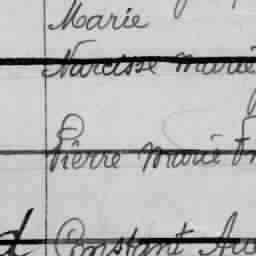 Marie
Narcisse Marie
Pierre Marie
Constant